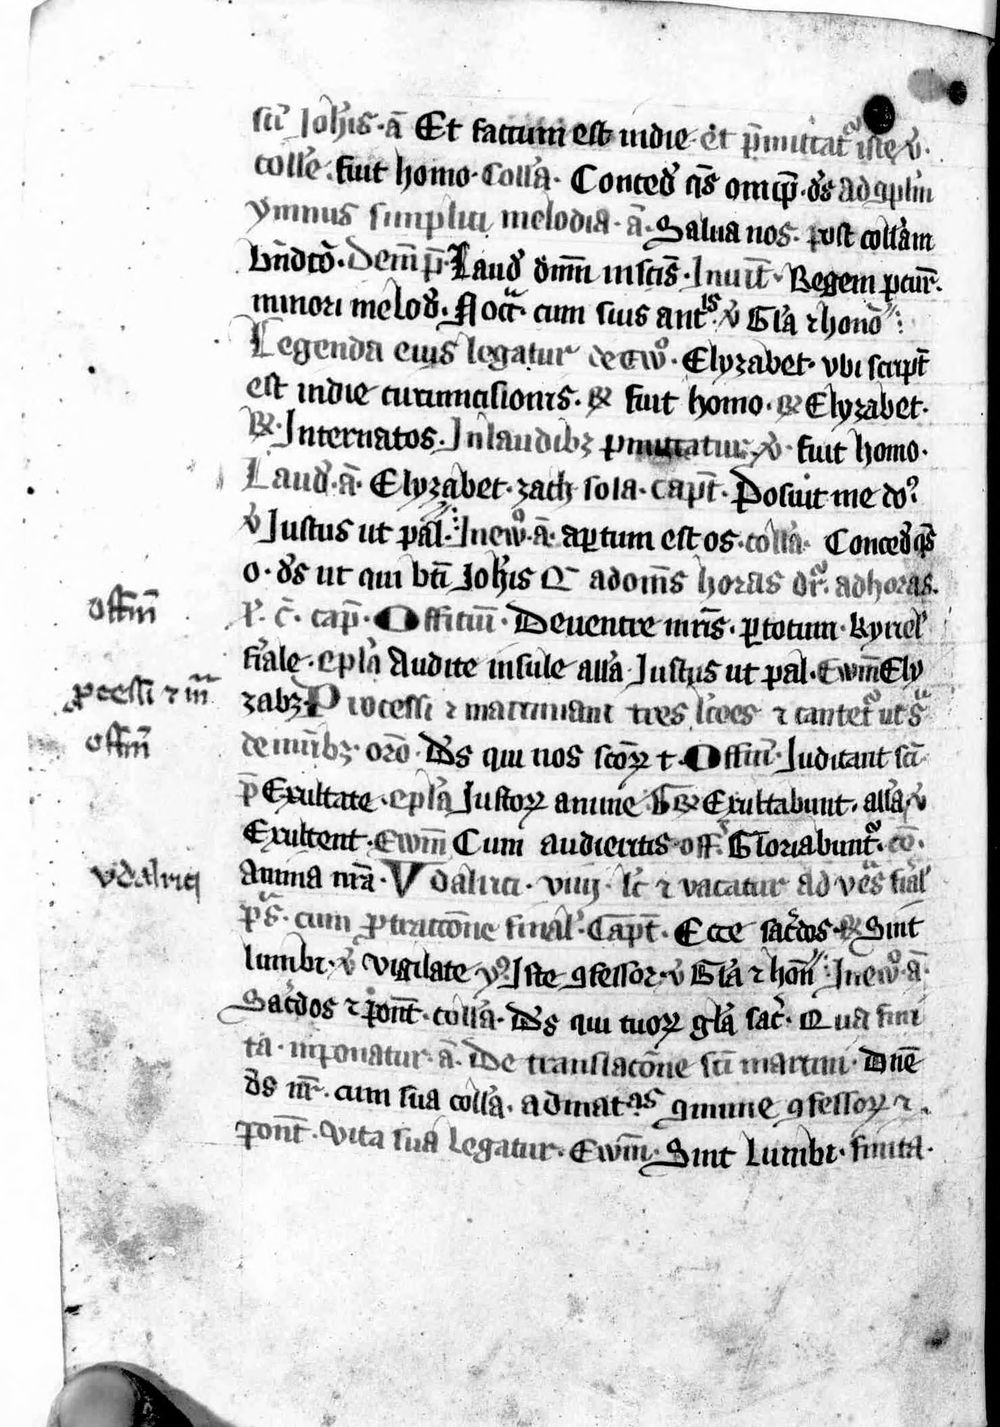 sci̅ Joh̅is · a̅ Et factum est in die et p̅mittat᷑ iste v̉ ·
colle̅ · fuit homo · Coll̉a · Conced̉ q̅s om̅ip̅ · d̅s ad ꝯpl̅in
ymnus simplici melodia · a̅ · Salua nos · post coll̉am
bn̅dco̅ · Dem̅ p̅ · Laud̉ dm̅m in sc̅is · Inuit̅ · Regem p̅cur̅ ·
minori melod̉ · Noct̅ · cum suis ant̅is v̉ Gl̉a ⁊ hono̅ ·
Legenda eius legatur de ew̅º · Elyzabet · vbi script̅
est in die circumcisionis · ꝶ fuit homo · ꝶ Elyzabet ·
ꝶ · Inter natos · In laudibꝫ p̅mittatur v̉ · fuit homo ·
Laud̉ · a̅ · Elyzabet · zach sola · capt̅ · Posuit me do᷑
v̉ Justus ut pal · In ew̅º · a̅ · apertum est os · coll̉a · Conced̉ q̅s
o · d̅s ut qui bt̅i Joh̅is Et ad om̅s horas dr̅ · ad horas ·
offm̅
p̉ · c̅ · cap̅ · Officiu̅ · De uentre mr̅is · ꝑ totum · kyriel̉
fi̅ale · epl̅a Audite insule all̉a Justus ut pal · Ewm̅ Ely
ꝓcessi ⁊ m̅
zabꝫ · Processi ⁊ martiniani tres l̅c̅oes ⁊ cantet᷑ ut s̅
offm̅
de mr̅ibꝫ · oro̅ · D̅s qui nos sco̅ꝝ ⁊ · Offiu̅ · Judicant sc̅i
p̅ Exultate · epl̅a Justoꝝ anime Gꝶ Exultabunt · all̉a · v̉
Exultent · Ewm̅ Cum audieritis off̅ · Gloriabunt᷑ · co̅ ·
vdalrici
Anima nr̅a · Vdalrici · viiij · lc̅ ⁊ vacatur ad ves̅ fi̅al̉
ps̅ · cum ꝓtractio̅ne final̉ · Capt̅ · Ecce sac̉dos · ꝶ Sint
lumbi · v̉ vigilate yº · Iste ꝯfessor · v̉ Gl̉a ⁊ hon̅ · In ew̅º · a̅ ·
Sac̉dos ⁊ pont̅ · coll̉a · D̅s qui tuoꝝ gl̉a sac̉ · Qua fini
ta · inponatur · a̅ · De translaco̅ne sci̅ martini · Dn̅e
d̅s nr̅ · cum sua coll̉a · ad mat̅as ꝯmune ꝯfessoꝝ ⁊
pont̅ · Vita sua legatur · Ewm̅ · Sint Lumbi · finita ·